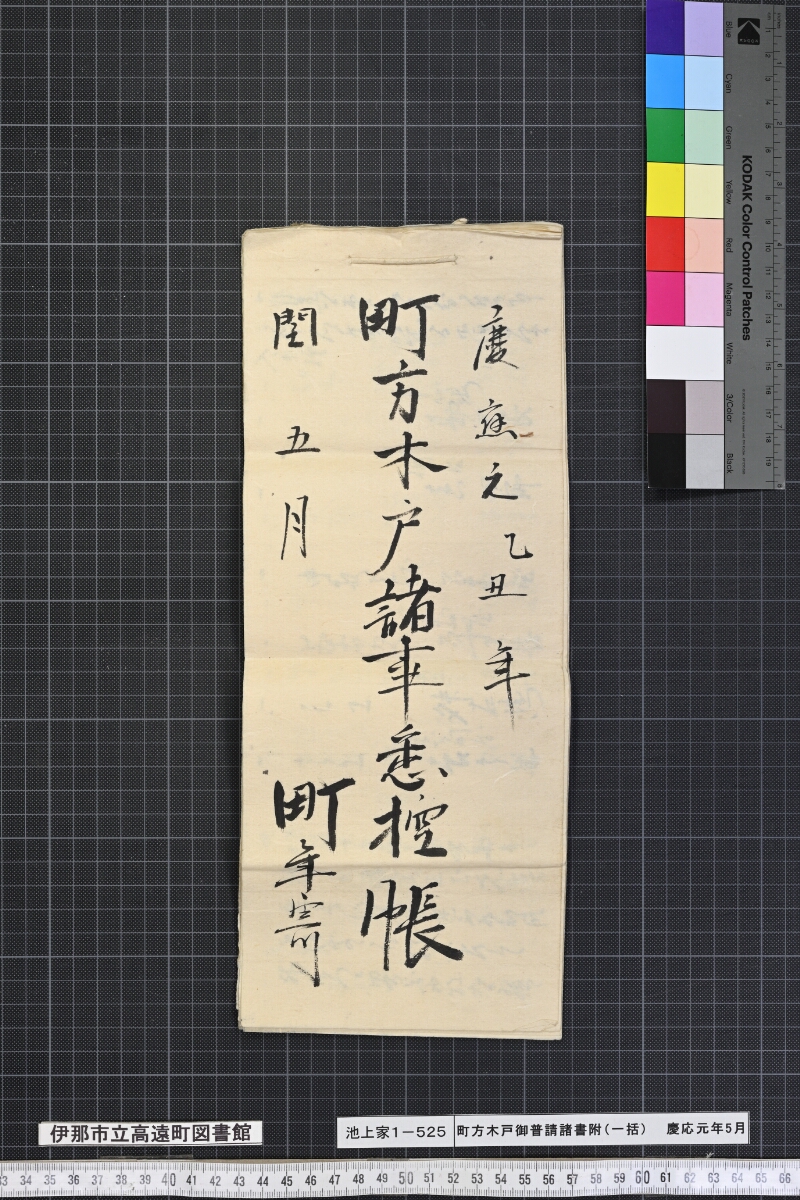 慶應元乙丑年
町方木戸諸事悉控帳
閏五月
町年寄
伊那市立高遠町図書館
池上家1-525 町方木戸御普請諸書附(一括) 慶応元年5月
KODAK Color Control Patches
Blue
Cyan
Green
Yellow
Red
Magenta
White
3/Color
Black
33 34 35 36 37 38 39 40 41 42 43 44 45 46 47 48 49 50 51 52 53 54 55 56 57 58 59 60 61 62 63 64 65 66